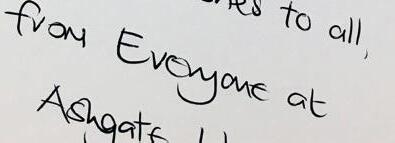 to all,
from Everyone at
Ashgate